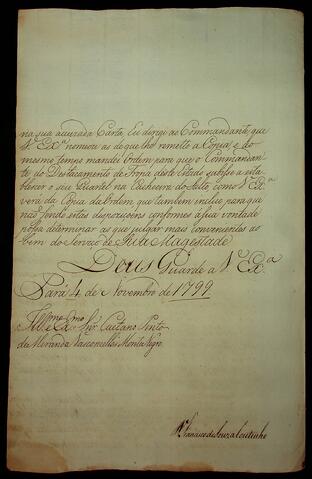 na sua accuzada Carta, Eu dirijo ao Commandante, que
V. Ex.ª nomeou as de que lhe remetto a Copia; e do
mesmo tempo mandei Ordem para que o Comman-
te do Destacamento de Tropa deste Estado subisse a esta
belecer o seu Quartel na Cachoeira do Salto, como V. Ex.ª
verá da Copia da Ordem, que tambem incluo para que
não sendo estas disposiçoens conformes á sua vontade
possa determinar as que julgar mais convenientes ao
bem do Serviço de Sua Magestade
Deos Guarde a V. Ex.ª
Pará 4 de Novembro de 1799
Ill.mo e Ex.mo Snr. Caetano Pinto
de Miranda Vascomcellos Monte Negro
D. Francisco de Souza Coutinho